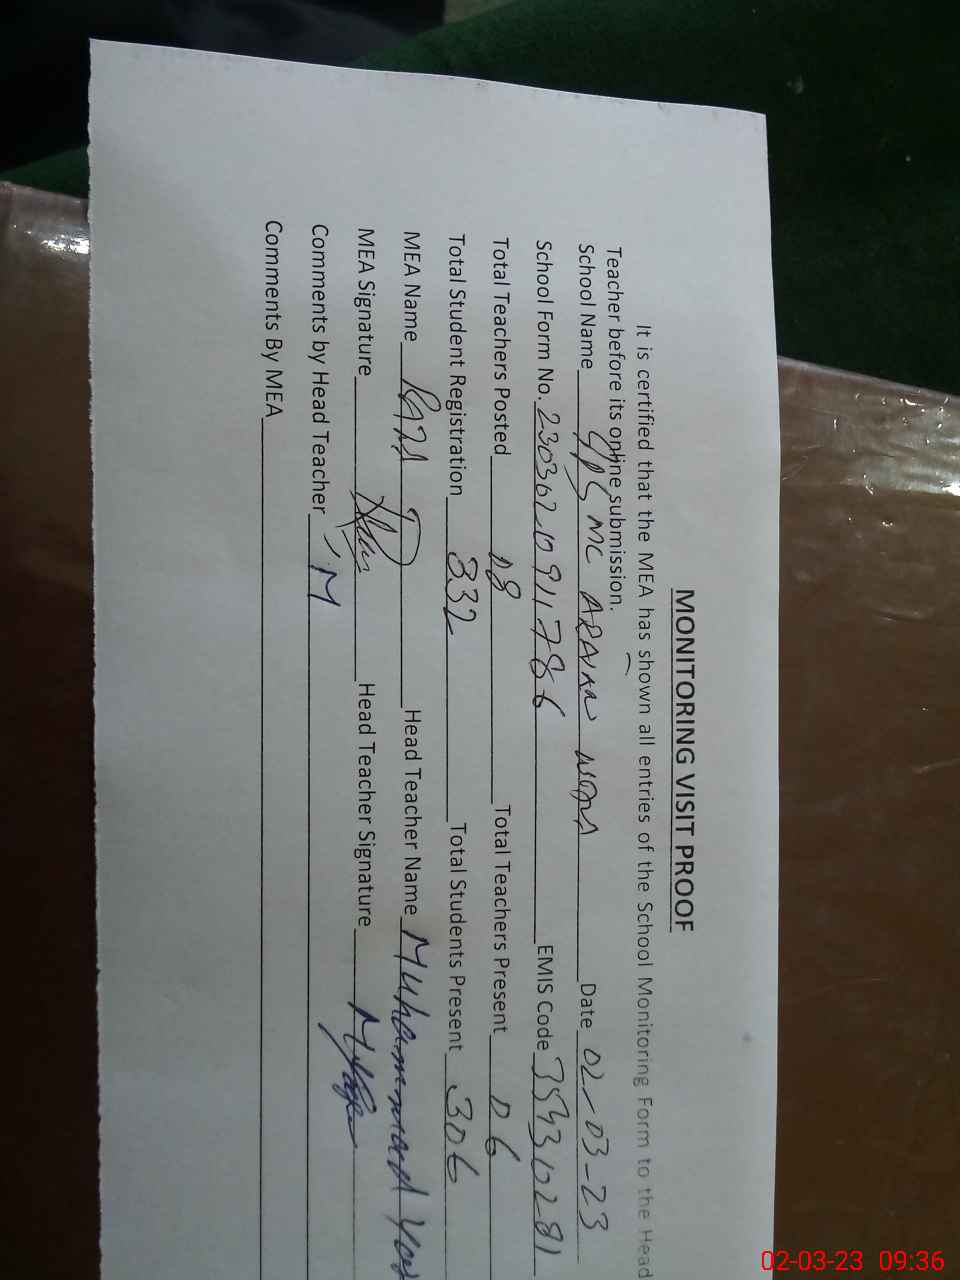 MONITORING VISIT PROOF
It is certified that the MEA has shown all entries of the School Monitoring Form to the Head
Teacher before its online submission.
School Name GPS MC ARAIAN WALA Date 02-03-23
School Form No. 23030210911786 EMIS Code 35430281
Total Teachers Posted 08 Total Teachers Present 06
Total Student Registration 332 Total Students Present 306
MEA Name Head Teacher Name Muhammad
MEA Signature Head Teacher Signature
Comments by Head Teacher
Comments By MEA
02-03-23 09:36